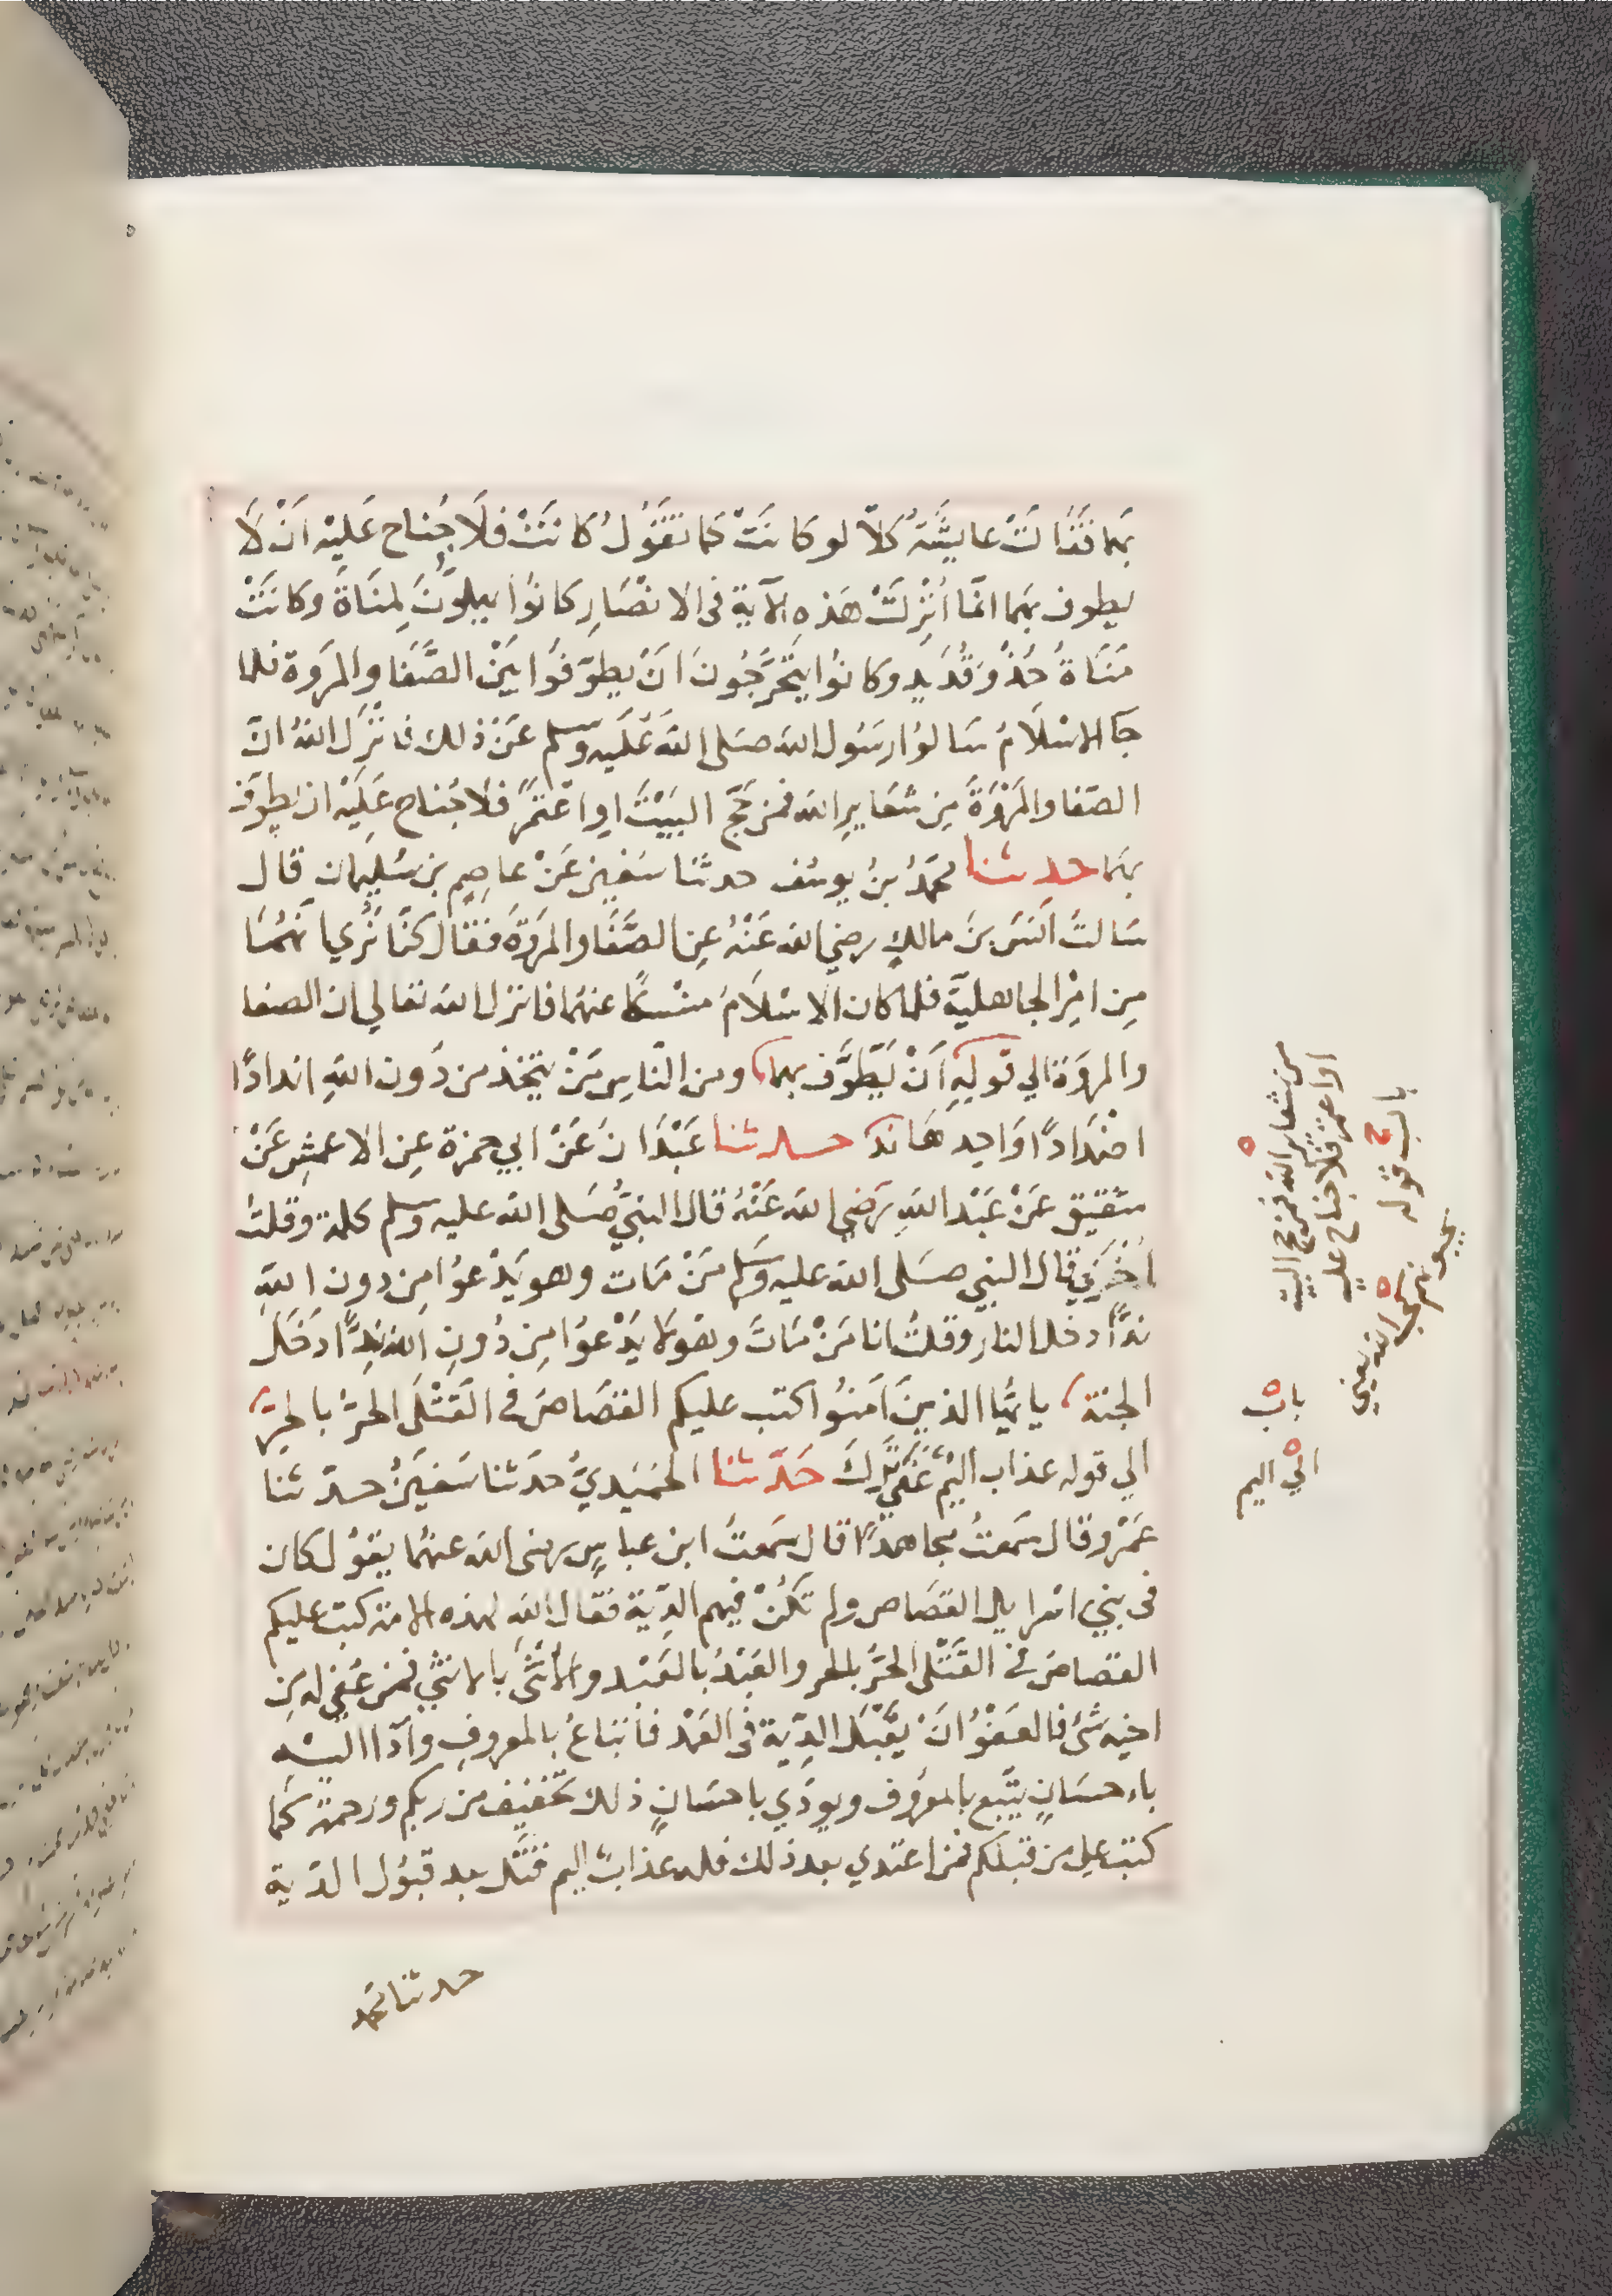 بِهِمَا فَقَالَتْ عايشَةُ كلَّا لو كانَتْ كما تَقُولُ كانَتْ فلَا جُناح عَلَيْه اَنْ لَا
يطوف بِهمَا انمَا اُنْزِلَتْ هَذِه الآية فى الانْصَارِ كانُوا يهلُّونَ لِمَنَاةَ وكانَتْ
مَنَاةُ حُذْوَ قُدَيدٍ وكانُوا يتحَرَّجُونَ انَ يطوّفوُا بَيْنَ الصَّفَا والمَروَة فلما
جَآ الاسْلَامُ سَالوُا رسَوُل الله صَلى الله عَلَيه وسلم عَنْ ذلك فانْزَل اللهُ انّ
الصّفا والمَرْوَةَ مِن شعَايرِ الله فمن حَجّ البَيْتَ اوِ اعْتَمَر فلا جُناح عَلَيْه ان يطوَّف
بهمَا حدثنا محَمدُ بنُ يوسُف حدثنا سَفين عَنْ عاصِمِ بن سُليمان قال
سَالتُ اَنَسَ بنَ مالكٍ رضي الله عَنْهُ عِن الصَّفَا والمَروَةَ فقَال كنَّا نُرَي انّهمُا
مِن امْرِ الجاهليَّة فلما كان الاسْلَامُ مسْسكْا عنهمُا فانزل الله تعالي ان الصفا
والمروَة الي قوله اَنْ يَطَّوَّف بهما ومن النّاسِ مَنْ يتّخذ من دَون اللهِ اندادًا
اضْدَادًا وَاحِدهَا ندّ حدثنا عَبْدَانُ عَنْ ابي حمزة عِن الاعمشِ عَنْ
شقيق عَنْ عَبْد اللهِ رَضي الله عَنْهُ قال النبيُّ صَلى الله عليه وسلم كلمة وقلتُ
اُخْرَي قال النبي صَلى الله عليه وسَلم مَنْ مَات وهو يَدْعوُا مِن دون اللهِ
ندًّا دخل النار وقلتُ انا مَنْ مَاتَ وهوَ لا يَدْعوُا مِن دُونِ الله نِدًّا دَخَلَ
الجنة يا يهُّا الذينَ آمَنوُا كتب عليكم القصَاصُ فى القَتْلَى الحرُّ بالحرِّ
الي قوله عذاب اليمٌ عُفِيَ تُرِكَ حَدّثنا الحمَيديُّ حدَثنا سَفينُ حدّثنا
عَمْرو قال سَمعتُ مجاهدًا قال سَمعتُ ابن عباسٍ رضى الله عنهمُا يقوُل كان
فى بني اسْرايل القصَاص ولم تكُنْ فيهم الدِّية فقال الله لهذه الامة كتب عليكم
القصاصُ فى القَتْلى الحرُّ بالحر والعَبْدُ بالعَبْد والاُنْثَى بالانثي فمن عُفِي له مِن
اخيه شَئ فالعَفْوُ انَ يَقْبَل الدِّية فى العَمْد فاتباعُ بالمعروفِ وادَآ اليْهِ
باءحسَانٍ يتَّبع بالمعرُوف ويودّي باحسَانٍ ذلك تخْفيف من ربكم ورحمةٌ كمَا
كتب علي من قبَلكم فمن اعتدي بعد ذلك فله عذابٌ اليم قتَل بعد قبوُل الدّية
حدثنا محمد
من شعاير الله فمن حج البيت
او اعتمر فلا جناح عليه
باب قوله
يحبونهم كحب الله يعني
باب
الي اليم